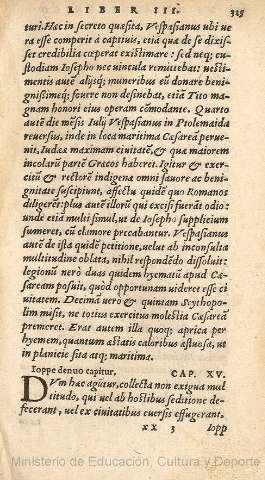 LIBER III. 325
turi. Hæc in secreto quæsita, Vespasianus ubi ve
ra esse comperit à captiuis, etiã quæ de se dixis-
set credibilia cœperat existimare: sed neq; cu-
stodiam Iosepho nec uincula remittebat: uesti-
mentis autẽ alijsq; muneribus eũ donare beni-
gnissimeq; fouere non desinebat, etiã Tito ma-
gnam honori eius operam cõmodante. Quarto
autẽ die mẽsis Iulij Vespasianus in Ptolemaida
reuersus, inde in loca maritima Cæsareã perue-
nit, Iudææ maximam ciuitatẽ, & quæ maiorem
incolarũ partẽ Græcos haberet. Igitur & exer-
citũ & rectorẽ indigenæ omni fauore ac beni-
gnitate suscipiunt, affectu quidẽ quo Romanos
diligerẽt: plus autẽ illorũ qui excisi fuerãt odio:
unde etiã multi simul, ut de Iosepho supplicium
sumeret, cũ clamore precabantur. Vespasianus
autẽ de ista quidẽ petitione, uelut ab inconsulta
multitudine oblata, nihil respondẽdo dissoluit:
legionũ uerò duas quidem hyematũ apud Cæ-
saream posuit, quòd opportunam uideret esse ci
uitatem. Decimã uerò & quintam Scythopo-
lim misit, ne totius exercitus molestia Cæsareã
premeret. Erat autem illa quoq; aprica per
hyemem, quantum æstatis caloribus æstuosa, ut
in planicie sita atq; maritima.
Ioppe denuo capitur, CAP. XV.
DVm hæc agũtur, collecta non exigua mul
titudo, qui uel ab hostibus seditione de-
fecerant, uel ex ciuitatibus euersis effugerant.
xx 3 Iopp
Ministerio de Educación, Cultura y Deporte